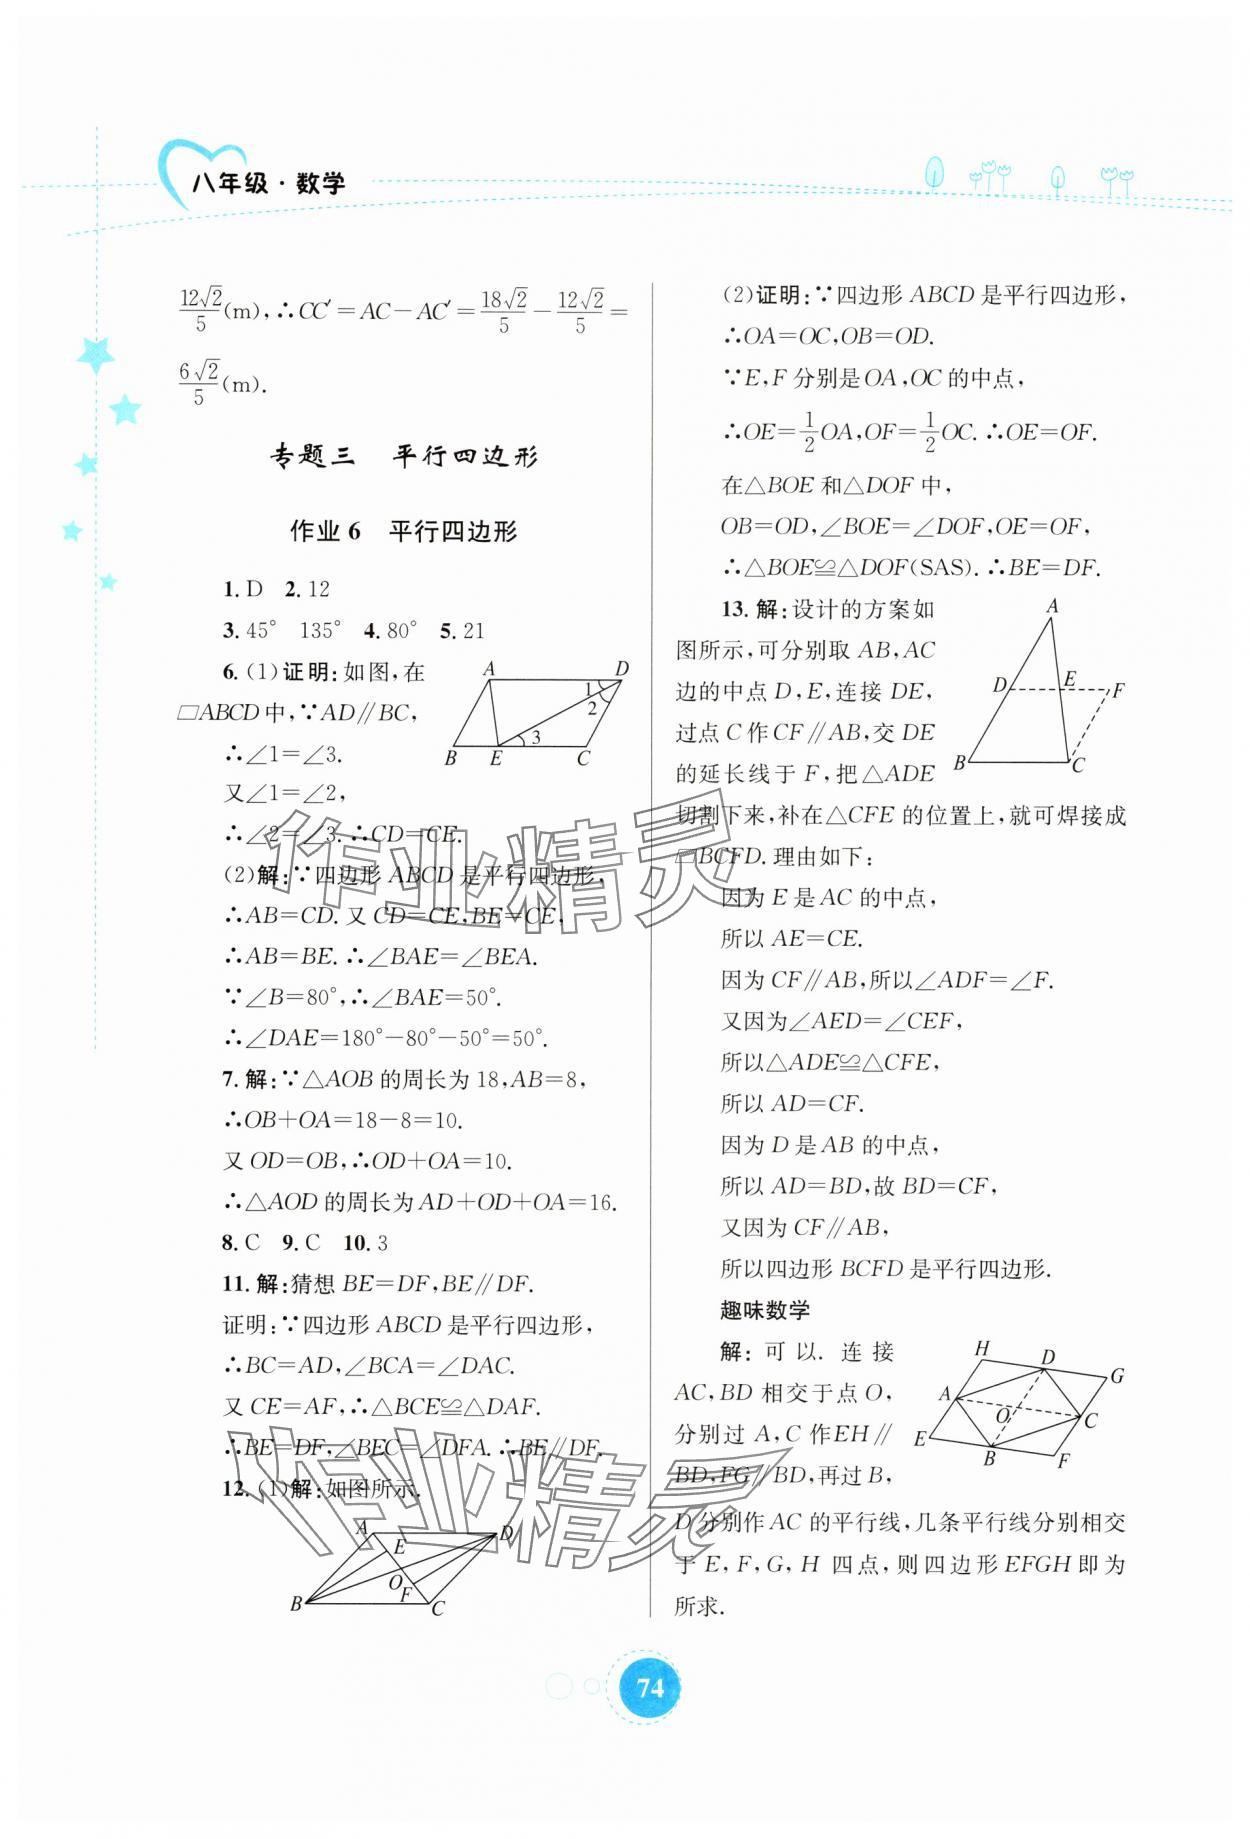 八年级·数学
12√2/5(m),∴CC′=AC－AC′=18√2/5－12√2/5=
6√2/5(m).
专题三　平行四边形
作业6　平行四边形
1. D　2. 12
3. 45°　135°　4. 80°　5. 21
6. (1)证明:如图,在
▱ABCD中,∵AD∥BC,
∴∠1=∠3.
又∠1=∠2,
∴∠2=∠3.∴CD=CE.
(2)解:∵四边形ABCD是平行四边形,
∴AB=CD.又CD=CE,BE=CE,
∴AB=BE.∴∠BAE=∠BEA.
∵∠B=80°,∴∠BAE=50°.
∴∠DAE=180°－80°－50°=50°.
7. 解:∵△AOB的周长为18,AB=8,
∴OB+OA=18－8=10.
又OD=OB,∴OD+OA=10.
∴△AOD的周长为AD+OD+OA=16.
8. C　9. C　10. 3
11. 解:猜想BE=DF,BE∥DF.
证明:∵四边形ABCD是平行四边形,
∴BC=AD,∠BCA=∠DAC.
又CE=AF,∴△BCE≌△DAF.
∴BE=DF,∠BEC=∠DFA.∴BE∥DF.
12. (1)解:如图所示.
A
D
1
2
3
B
E
C
A
D
E
O
F
B
C
(2)证明:∵四边形ABCD是平行四边形,
∴OA=OC,OB=OD.
∵E,F分别是OA,OC的中点,
∴OE=1/2OA,OF=1/2OC.∴OE=OF.
在△BOE和△DOF中,
OB=OD,∠BOE=∠DOF,OE=OF,
∴△BOE≌△DOF(SAS).∴BE=DF.
13. 解:设计的方案如
图所示,可分别取AB,AC
边的中点D,E,连接DE,
过点C作CF∥AB,交DE
的延长线于F,把△ADE
切割下来,补在△CFE的位置上,就可焊接成
▱BCFD.理由如下:
因为E是AC的中点,
所以AE=CE.
因为CF∥AB,所以∠ADF=∠F.
又因为∠AED=∠CEF,
所以△ADE≌△CFE,
所以AD=CF.
因为D是AB的中点,
所以AD=BD,故BD=CF,
又因为CF∥AB,
所以四边形BCFD是平行四边形.
A
D
E
F
B
C
趣味数学
解:可以.连接
AC,BD相交于点O,
分别过A,C作EH∥
BD,FG∥BD,再过B,
D分别作AC的平行线,几条平行线分别相交
于E,F,G,H四点,则四边形EFGH即为
所求.
H
D
G
A
O
C
E
B
F
作业精灵
作业精灵
74